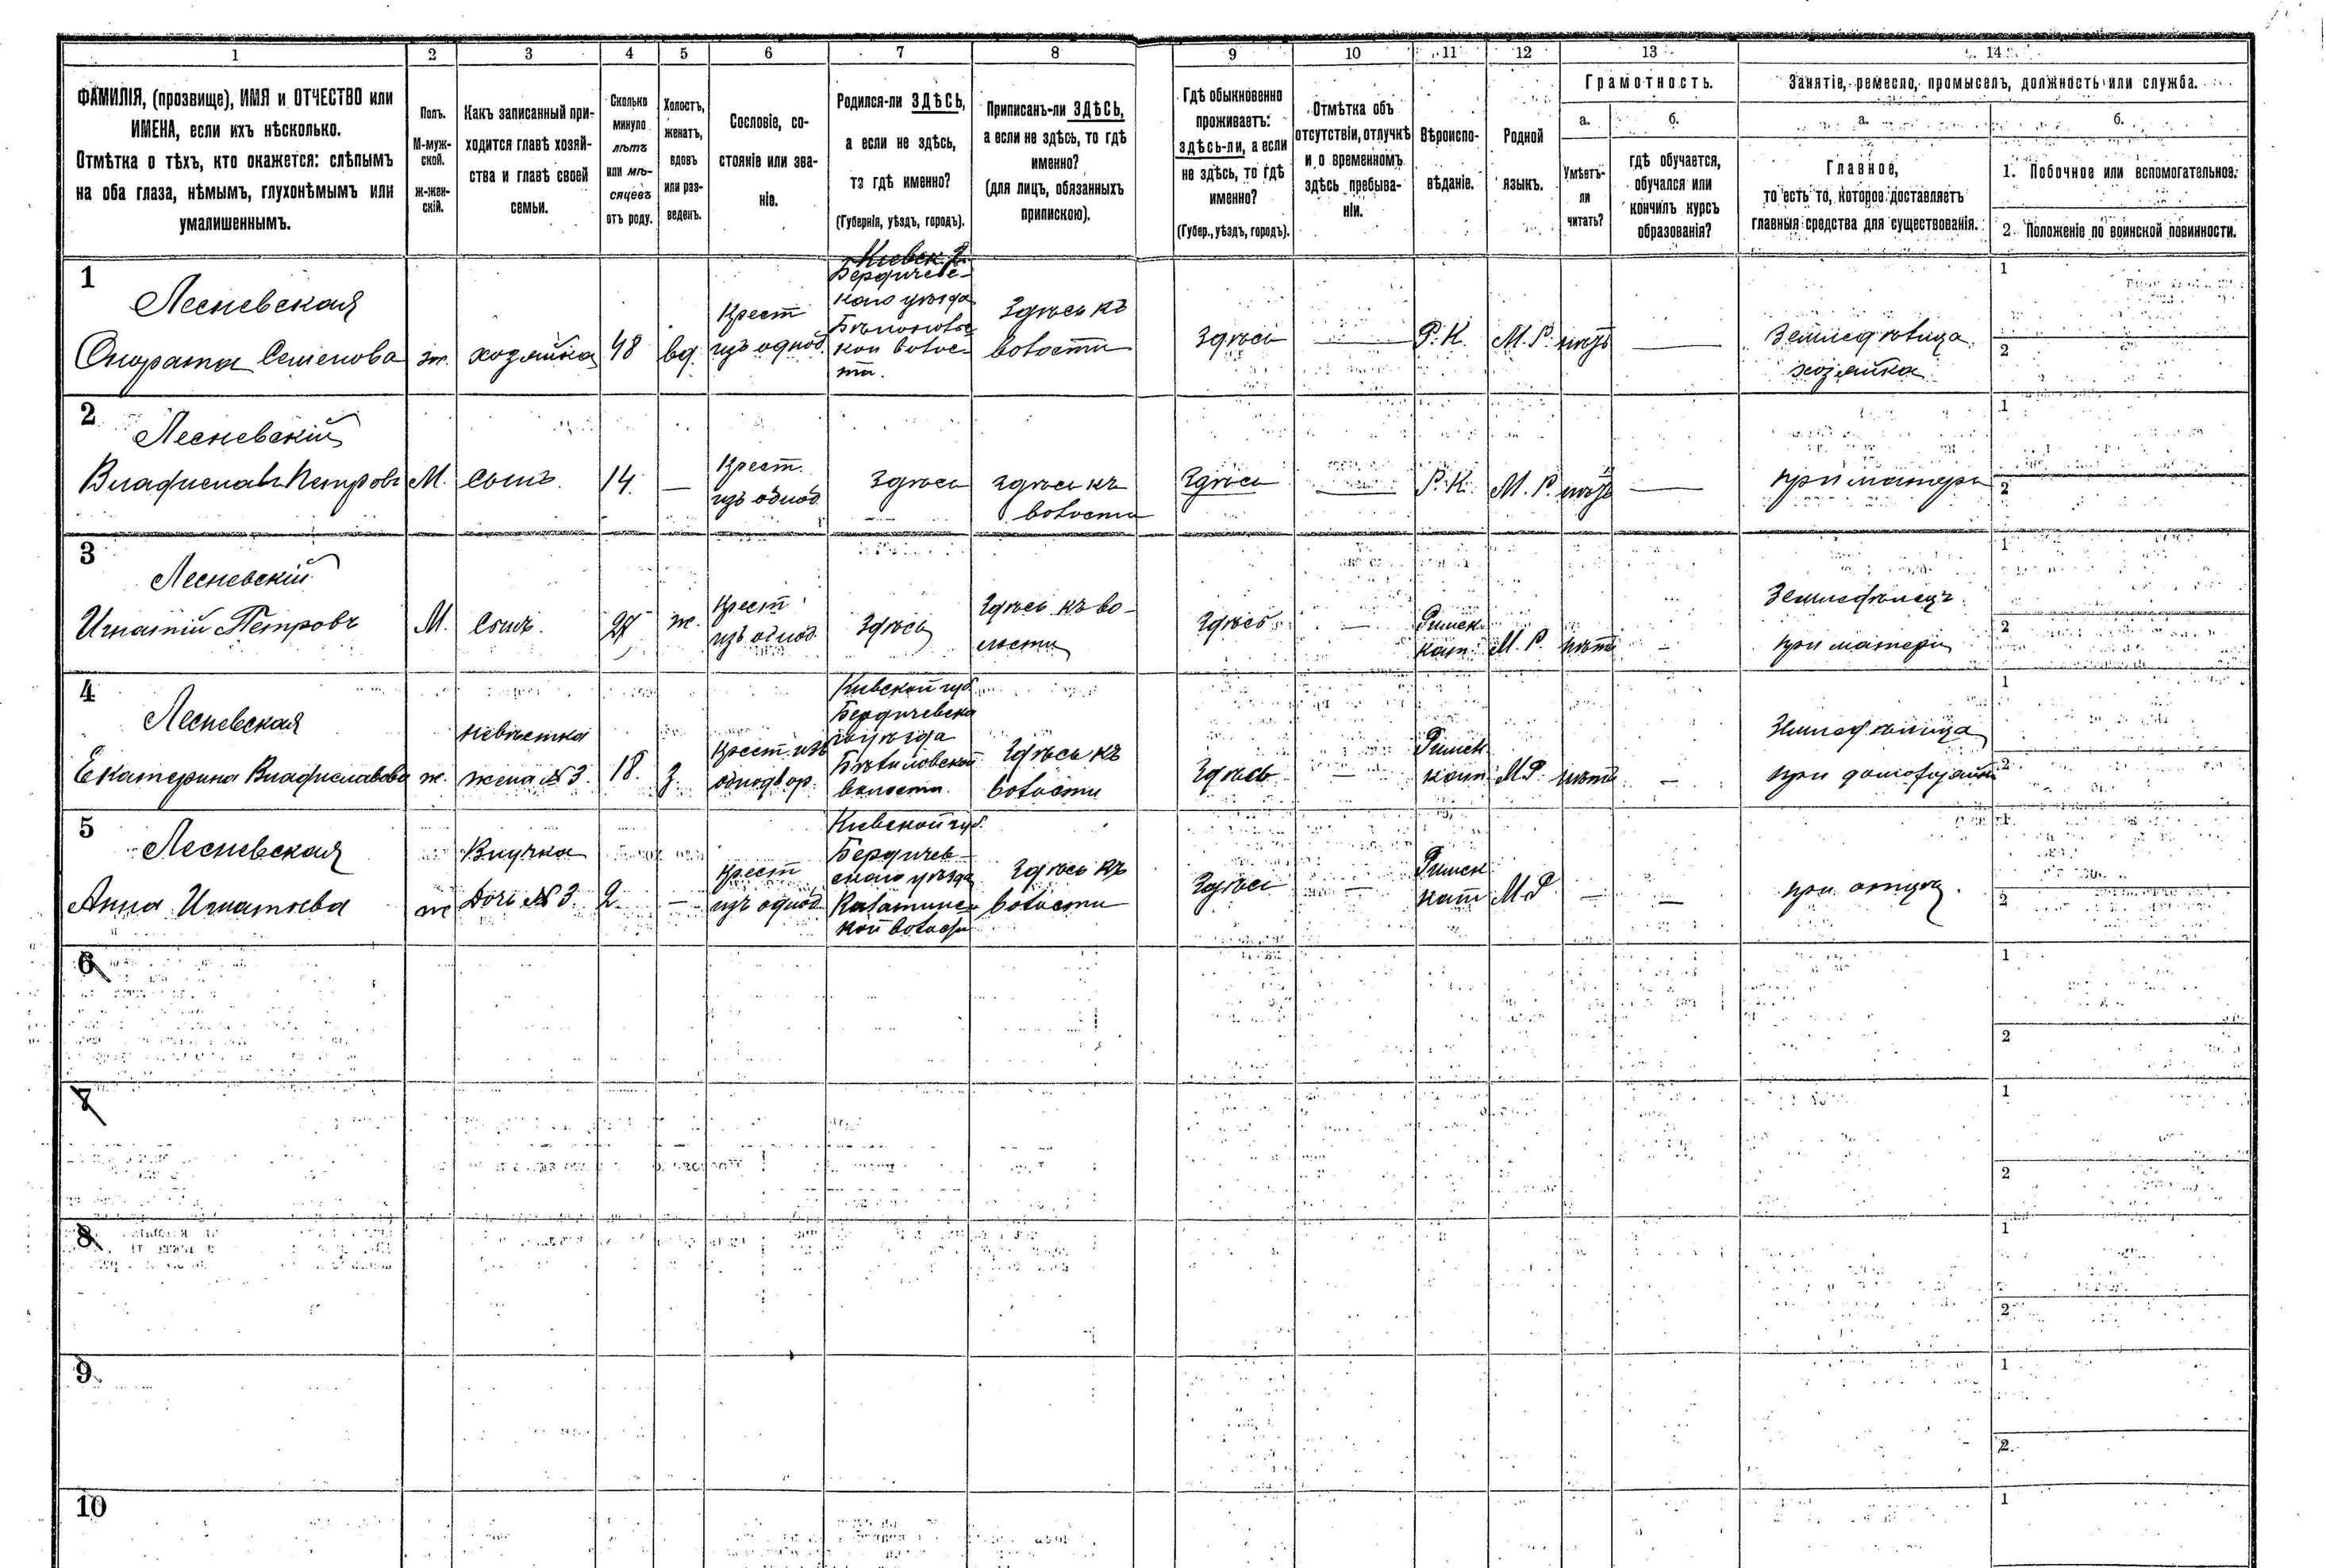 1 2 3 4 5 6 7 8 9 10 11 12 13 14
ФАМИЛІЯ, (прозвище), ИМЯ и ОТЧЕСТВО или
ИМЕНА, если ихъ нѣсколько.
Отмѣтка о тѣхъ, кто окажется: слѣпымъ
на оба глаза, нѣмымъ, глухонѣмымъ или
умалишеннымъ.
Полъ.
М-муж-
ской.
ж-жен-
скій.
Какъ записанный при-
ходится главѣ хозяй-
ства и главѣ своей
семьи.
Сколько
минуло
лѣтъ
или мѣ-
сяцевъ
отъ роду.
Холостъ,
женатъ,
вдовъ
или раз-
веденъ.
Сословіе, со-
стояніе или зва-
ніе.
Родился-ли ЗДѢСЬ,
а если не здѣсь,
то гдѣ именно?
(Губернія, уѣздъ, городъ).
Приписанъ-ли ЗДѢСЬ,
а если не здѣсь, то гдѣ
именно?
(для лицъ, обязанныхъ
припискою).
Гдѣ обыкновенно
проживаетъ:
здѣсь-ли, а если
не здѣсь, то гдѣ
именно?
(Губер., уѣздъ, городъ).
Отмѣтка объ
отсутствіи, отлучкѣ
и о временномъ
здѣсь пребыва-
ніи.
Вѣроиспо-
вѣданіе.
Родной
языкъ.
Грамотность.
а.
Умѣетъ-
ли
читать?
б.
гдѣ обучается,
обучался или
кончилъ курсъ
образованія?
Занятіе, ремесло, промыселъ, должность или служба.
а.
Главное,
то есть то, которое доставляетъ
главныя средства для существованія.
б.
1. Побочное или вспомогательное.
2. Положеніе по воинской повинности.
1
Лесневская
Семенова
ж.
хозяйка
48
вд.
Крест
изъ однод.
Киевск. г.
Бердичевс-
каго уѣзда
кой волос-
ти.
Здѣсь къ
волости
Здѣсь
—
Р. К.
М. Р.
нѣтъ
—
Земледѣлица
хозяйка
1
2
2
Лесневскій
Владиславъ Петровъ
М.
сынъ.
14.
—
Крест.
изъ однод.
Здѣсь
здѣсь къ
волости
Здѣсь
—
Р. К.
М. Р.
нѣтъ
—
при матери
1
2
3
Лесневскій
Игнатій Петровъ
М.
сынъ.
ж.
Крест
изъ однод.
Здѣсь
Здѣсь къ во-
лости
Здѣсь
—
Римск.
кат.
М. Р.
нѣтъ
—
Земледѣлецъ
при матери
1
2
4
Лесневская
Екатерина Владиславова
ж.
невѣстка
жена №3.
18.
з.
Крест. изъ
однодвор.
Киевской губ
Бердичевска
го уѣзда
Бѣлиловской
волости.
Здѣсь къ
волости
Здѣсь
—
Римск.
кат.
М.Р.
нѣтъ
—
Земледѣлица
при
1
2
5
Лесневская
Анна Игнатьева
ж
Внучка
дочь №3.
2.
—
Крест
изъ однод.
Киевской губ.
Бердичев-
скаго уѣзда
кой волости
Здѣсь къ
волости
Здѣсь
—
Римск
кат
М.Р.
—
—
при отцѣ.
1
2
6
1
2
7
1
2
8
1
2
9
1
2
10
1